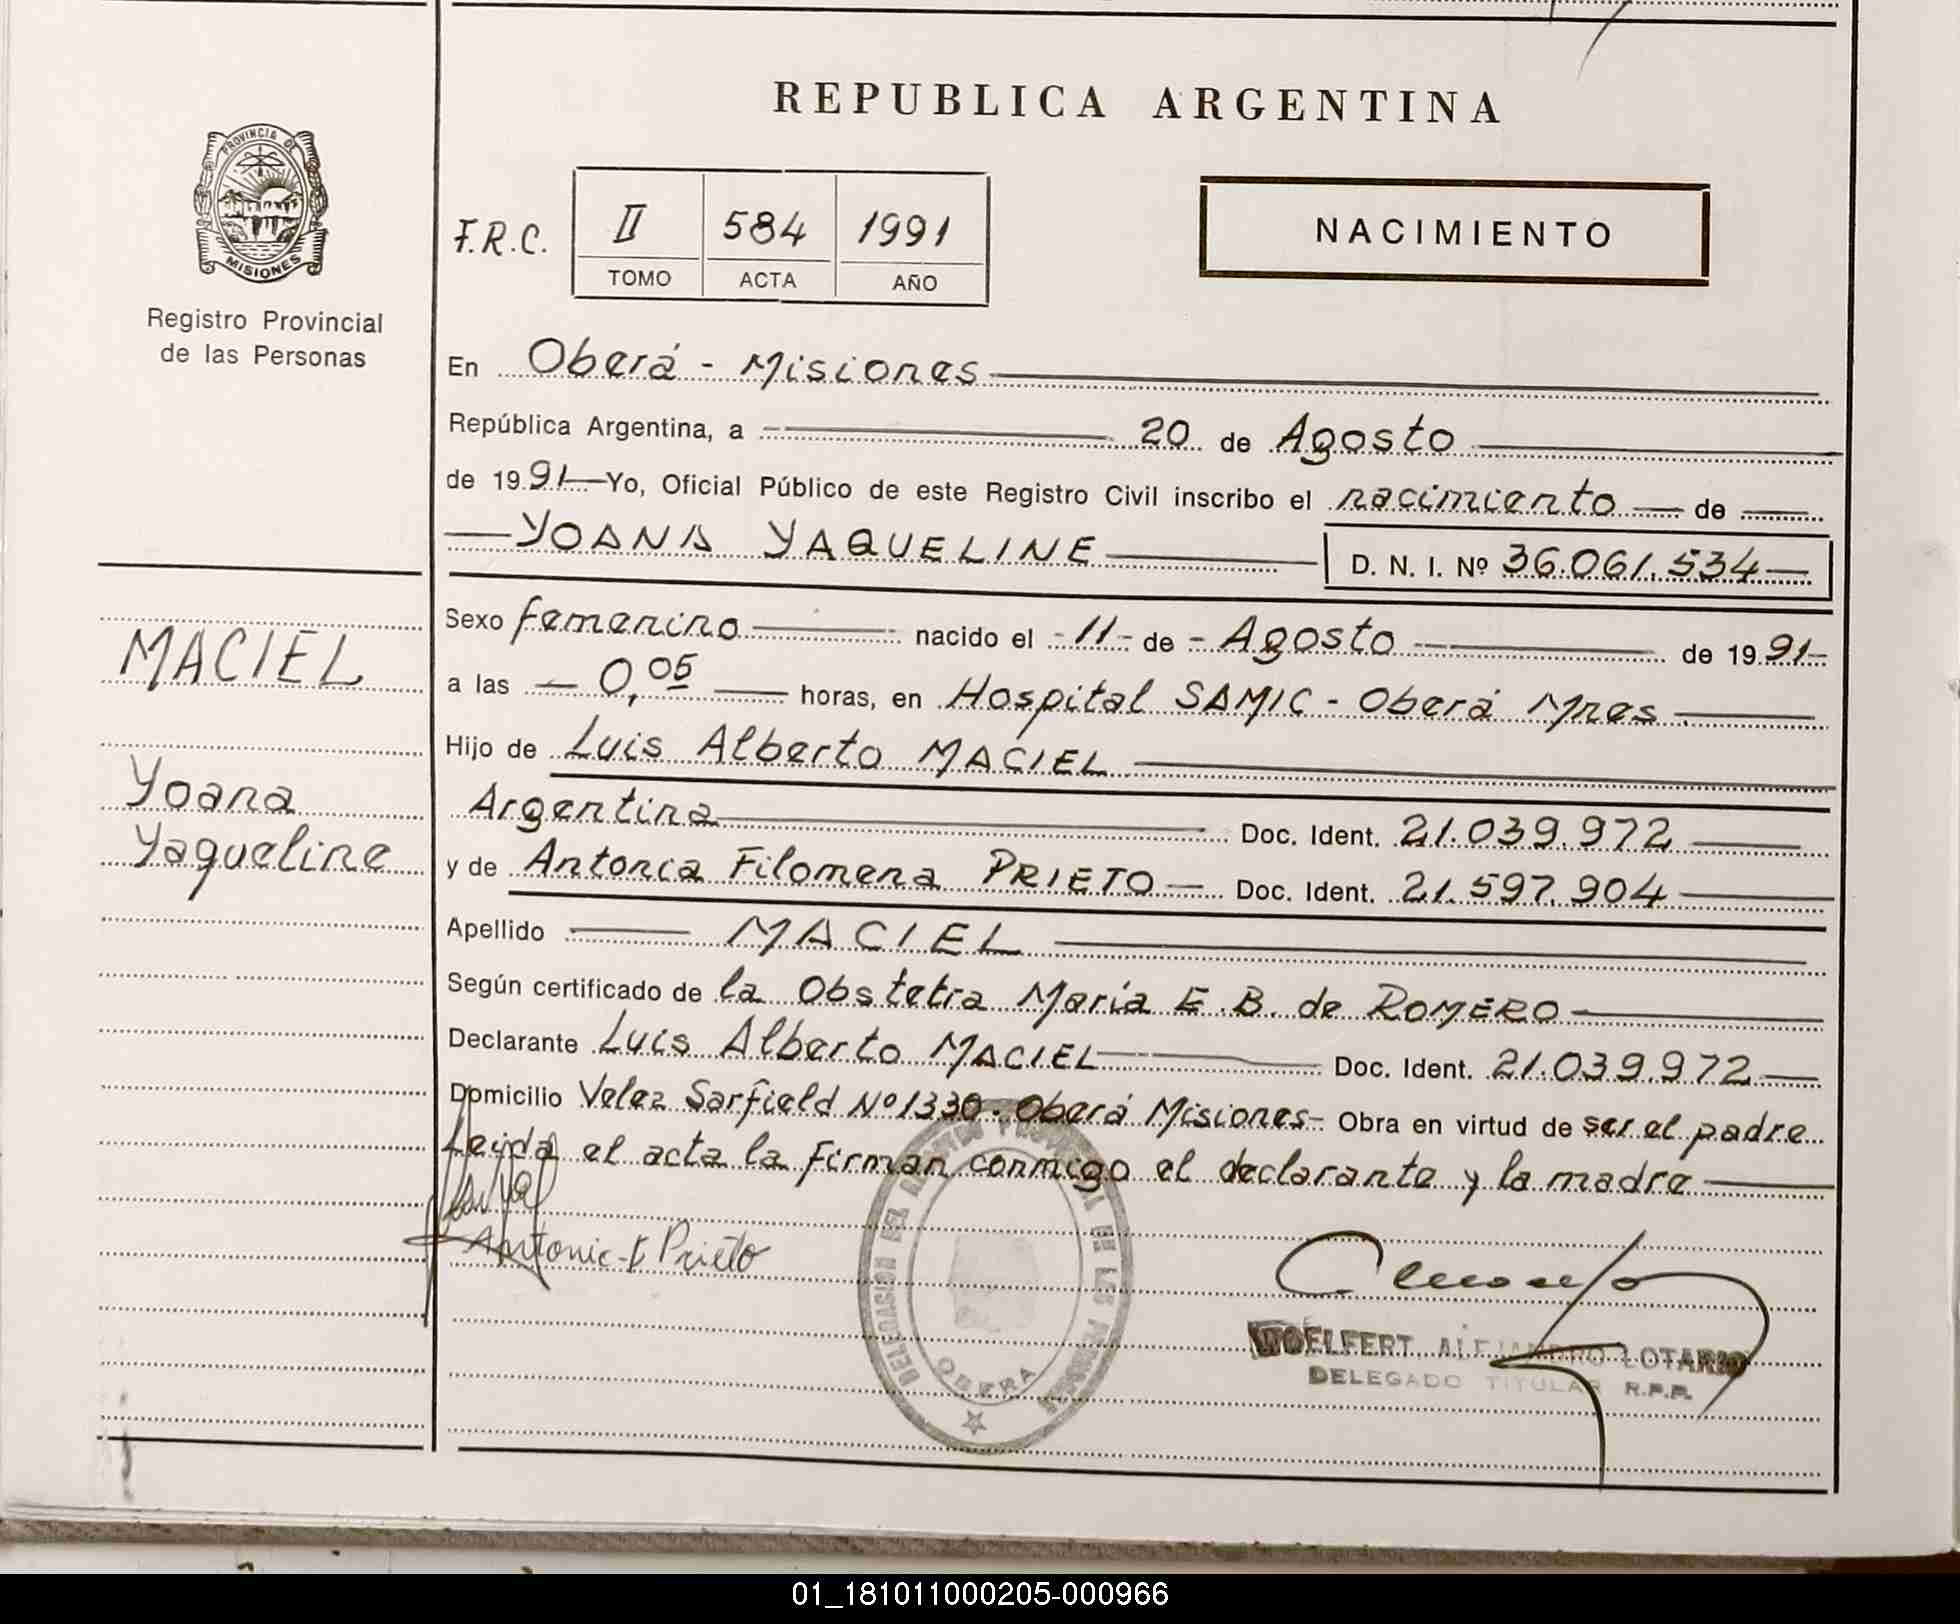 REPUBLICA ARGENTINA
PROVINCIA DE
MISIONES
Registro Provincial
de las Personas
F.R.C.
II 584 1991
TOMO ACTA AÑO
NACIMIENTO
En Oberá - Misiones
República Argentina, a 20 de Agosto
de 1991 Yo, Oficial Público de este Registro Civil inscribo el nacimiento de
YOANA YAQUELINE D. N. I. Nº 36.061.534
MACIEL
Yoana
Yaqueline
Sexo femenino nacido el -11- de - Agosto de 1991-
a las 0,05 horas, en Hospital SAMIC - Oberá Mnes
Hijo de Luis Alberto MACIEL
Argentina Doc. Ident. 21.039.972
y de Antonia Filomena PRIETO Doc. Ident. 21.597.904
Apellido MACIEL
Según certificado de la Obstetra María E.B. de ROMERO
Declarante Luis Alberto MACIEL Doc. Ident. 21.039.972
Domicilio Velez Sarfield Nº 1330. Oberá Misiones- Obra en virtud de ser el padre
Leida el acta la firman conmigo el declarante y la madre
Prieto
DELEGACION DEL REGISTRO PROVINCIAL DE LAS PERSONAS
OBERA
WOELFERT ALEJANDRO LOTARIO
DELEGADO TITULAR R.P.P.
01_181011000205-000966